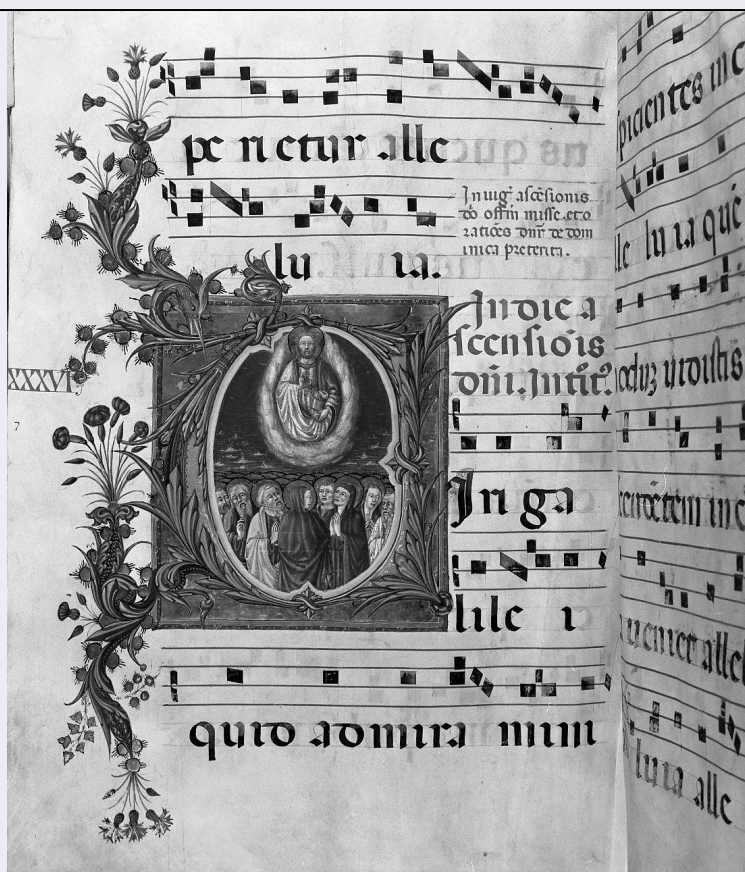 pe rietur alle
In uigͣ ascēsionis
dō offm̄ misse. et o
ratiōes dn̄r de dom
inica preterita.
lu ia.
In die a
scensiōis
XXXVI
dn̄i. Intit̄.
V
In ga
lile i
quid admira mini
spicientes in c
lle lu ia quē
uidistis
in c
ueniet allel
luia alle